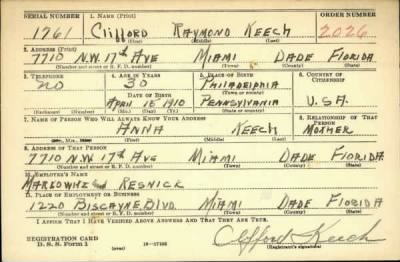 SERIAL NUMBER 1. NAME (Print) ORDER NUMBER
1761 Clifford Raymond Keech 2026
(First) (Middle) (Last)
2. ADDRESS (Print)
7710 N.W. 17th Ave Miami Dade Florida
(Number and street or R. F. D. number) (Town) (County) (State)
3. TELEPHONE 4. AGE IN YEARS 5. PLACE OF BIRTH 6. COUNTRY OF CITIZENSHIP
NO 30 Philadelphia
DATE OF BIRTH (Town or county)
April 1910 Pennsylvania U.S.A.
(Mo.) (Day) (Yr.) (State or country)
7. NAME OF PERSON WHO WILL ALWAYS KNOW YOUR ADDRESS 8. RELATIONSHIP OF THAT PERSON
Anna Keech Mother
(First) (Middle) (Last)
9. ADDRESS OF THAT PERSON
7710 N.W 17th Ave Miami Dade Florida
(Number and street or R. F. D. number) (Town) (County) (State)
10. EMPLOYER'S NAME
and Resnick
11. PLACE OF EMPLOYMENT OR BUSINESS
1220 Biscayne Blvd. Miami Dade Florida
(Number and street or R. F. D. number) (Town) (County) (State)
I AFFIRM THAT I HAVE VERIFIED ABOVE ANSWERS AND THAT THEY ARE TRUE.
REGISTRATION CARD
D. S. S. Form 1 (over) Clifford Keech
(Registrant's signature)